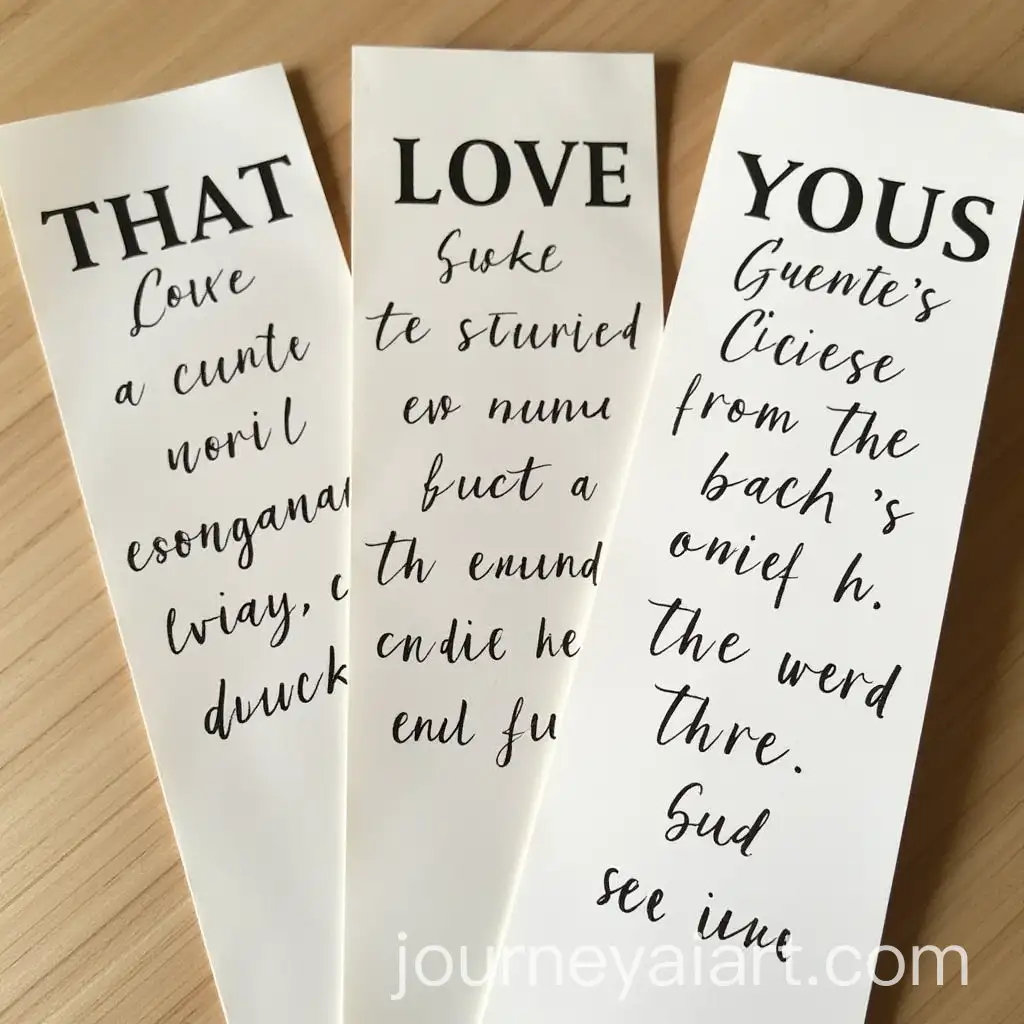 THAT
Loure
a cunte
noril
esonganar
lviay, c
duuck
LOVE
Suoke
te sturied
ev nunu
fuct a
th enund
cndie he
enl fu
YOUS
Guente's
Ciciese
from the
bach 's
onief h.
the werd
thre.
Sud
see iune
journeyaiart.com